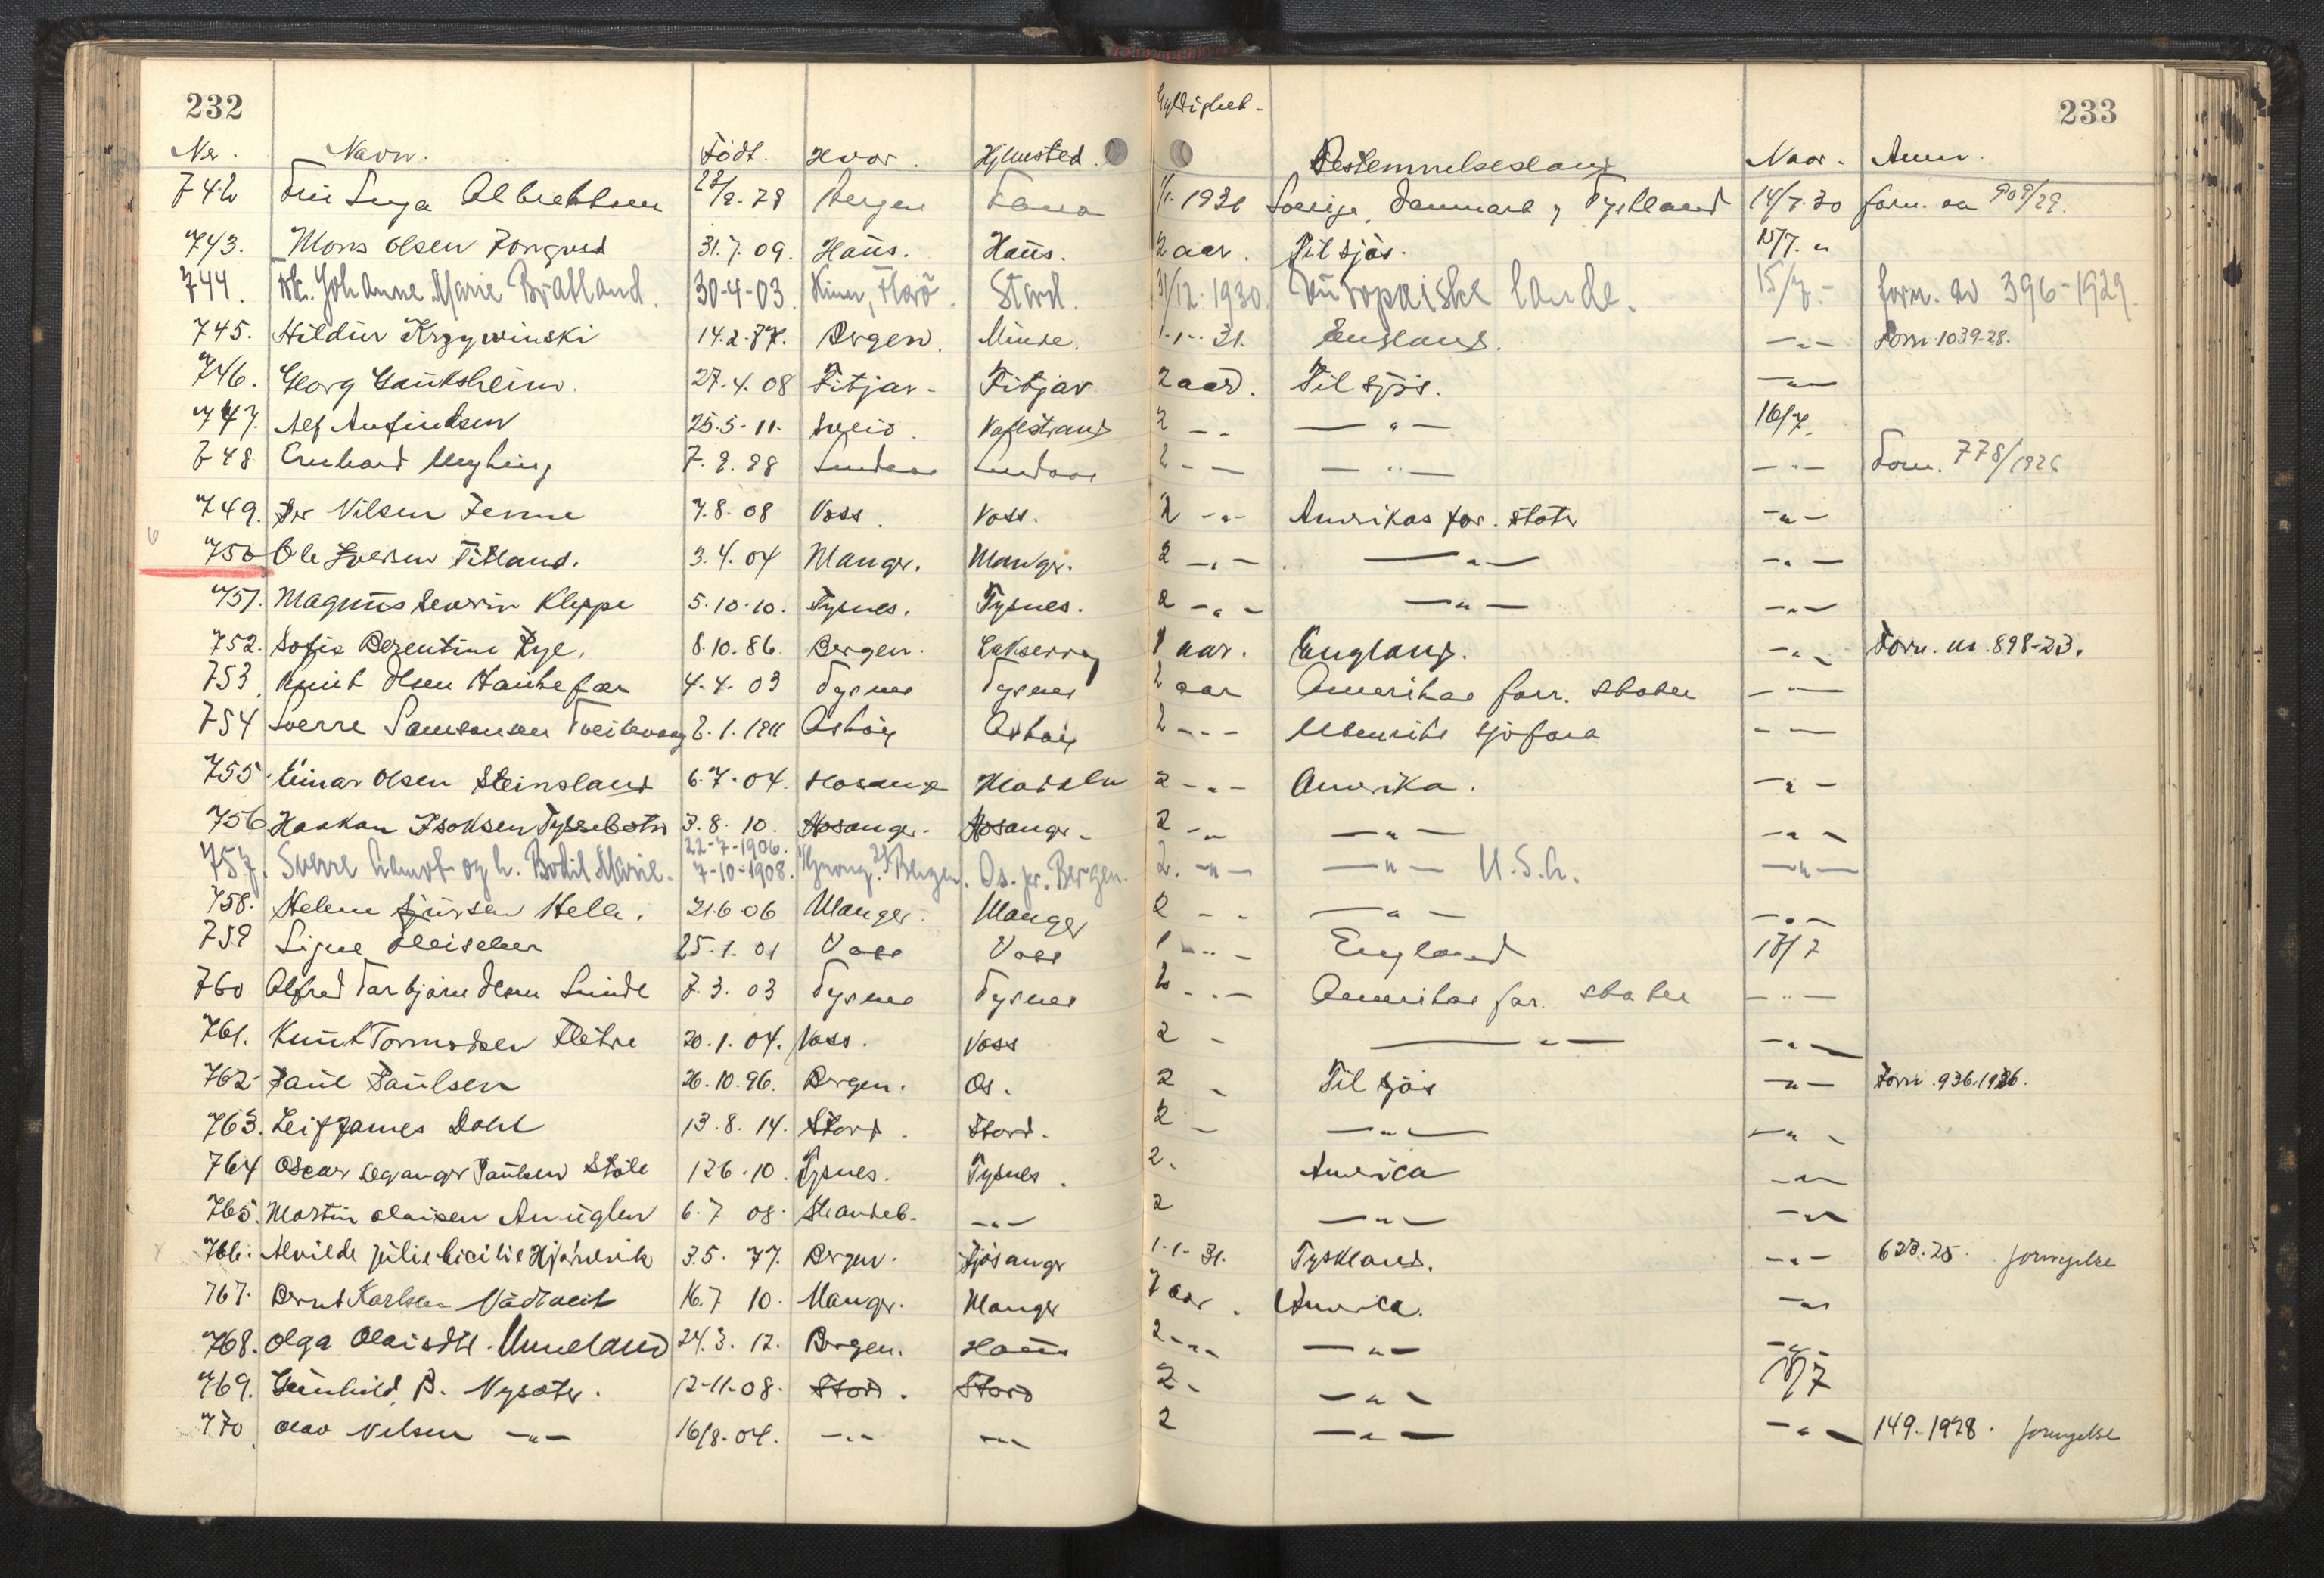 232
233
Gyldighet -
Nr. Navn. Födt. Hvor. Hjemsted. Bestemmelsesland Naar. Anm.
742 Inga 23/9.78 Bergen Fana 1/1. 1931 Sverige, Danmark, Tyskland 14/7.30 forn. av 909/29.
743. Mons Olsen 31.7.09. Haus. Haus. 2 aar. Til sjös. 15/7. "
744. Frk. Johanne Marie Bratland. 30-4-03. Kinn, Florö. Stord. 31/12.1930. Europaiske lande. 15/7 - forn. av 396-1929.
745. Hildur Krzywinski 14.2.87. Bergen. Minde. 1-1-31. England. —"— Forn 1039-28.
746. Georg Gauksheim. 27.4.08 Fitjar. Fitjar 2 aar. Til sjös. —"—
747. Alf Anfindsen 25.5-11. Sveio. Valestrand 2 -- —"— 16/7.
748 Ernhard 7.9.98 Lindaas Lindaas 2 -- —"— —"— Forn. 778/1926
749. Per Nilsen 7.8.08 Voss. Voss. 2 -"- Amerikas for. stater -"-
750 Ole Iversen Titland. 3.4.04 Manger. Manger. 2 -"- —"— -"-
751. Magnus Severin Kleppe 5.10.10. Tysnes. Tysnes. 2 -"- —"— -"-
752. Sofie Berentine Rye. 8.10.86. Bergen. Laksevåg 1 aar. England. -"- Forn. nr. 898-23.
753 Knut Olsen 4.4.03 Tysnes Tysnes 2 aar Amerikas forr. stater -"-
754 Sverre Samsonsen Tveitevaag 2.1.1911 Askøy Askøy 2 --- Utenriks sjöfart -"-
755. Einar Olsen Steinsland 6.7.04. Hosanger Modalen 2 -"- Amerika. -"-
756 Haakon Isaksen Tyssebotn 3.8.10. Hosanger. Hosanger. 2 -"- —"— -"-
757. Sverre og h. Bodil Marie. 22-7-1906. 7-10-1908. 2) Bergen. Os. pr. Bergen. 2. -"- —"— U.S.A. —"—
758. Helene Sjursen Hella. 21.6.06 Manger. Manger 2 -- —"— -"-
759 Signe Fleischer 25.1.01 Voss Voss 1 -"- England 17/7
760 Alfred Torbjørn Olsen Lunde 7.3.03 Tysnes Tysnes 2 -"- Amerikas for. stater -"-
761. Knut Tormodsen Fletre 20.1.04. Voss. Voss 2 - —"— -"-
762. Paul Paulsen 26.10.96. Bergen. Os. 2 - Til sjös -"- Forn. 936.1926.
763. Leif James Dahl 13.8.14. Stord. Stord. 2 - —"— -"-
764 Oscar Paulsen Støle 12 6.10. Tysnes. Tysnes. 2. America -"-
765. Martin Olaisen Anuglen 6.7 08. Strandeb. -"- 2 —"— -"-
766. Alvilde Julie 3.5.77. Bergen. Fjøsanger 1-1-31. Tyskland. -"- 623.25. fornyelse
767. Bernt Karlsen 16.7 10. Manger. Manger 2 aar. America. -"-
768. Olga Olaisdtr. Unneland 24.3.12. Bergen. Haus 2 -"- —"— -"-
769. Gunhild B. Nysæter. 12-11-08. Stord. Stord 2 - —"— 18/7
770 Olav Nilsen —"— 16/8-04. -"- -"- 2 —"— -"- 149.1928. fornyelse